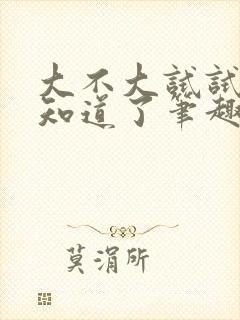 大不大试试
知道了笔趣
莫涓所